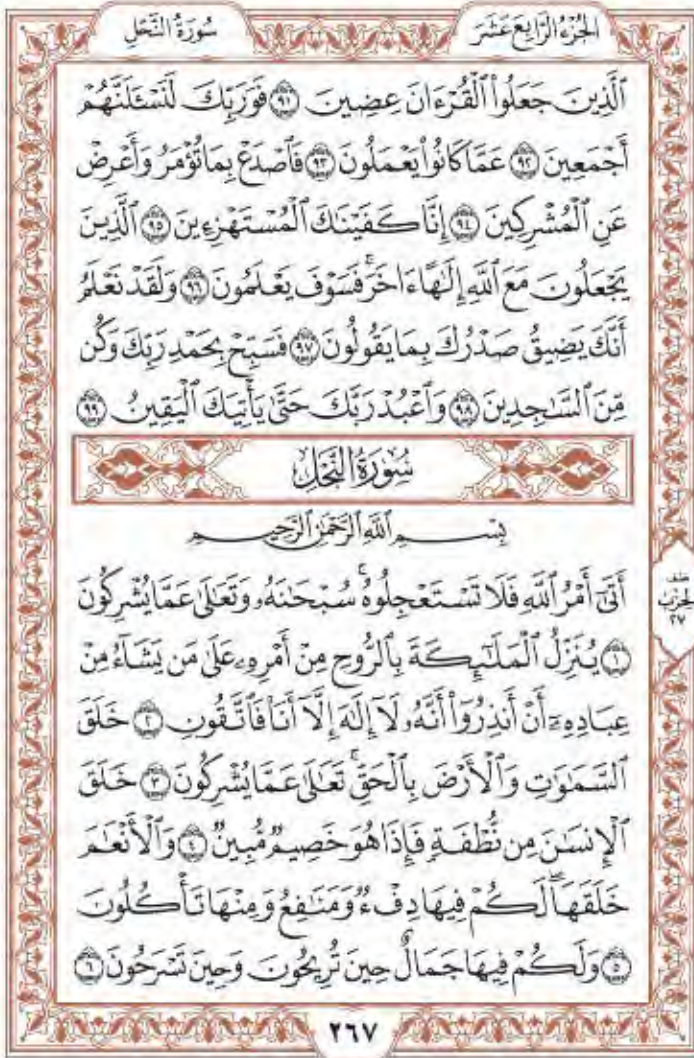 الجزء الرابع عشر
سورة النحل
ٱلَّذِينَ جَعَلُوا۟ ٱلْقُرْءَانَ عِضِينَ ٩١ فَوَرَبِّكَ لَنَسْـَٔلَنَّهُمْ
أَجْمَعِينَ ٩٢ عَمَّا كَانُوا۟ يَعْمَلُونَ ٩٣ فَٱصْدَعْ بِمَا تُؤْمَرُ وَأَعْرِضْ
عَنِ ٱلْمُشْرِكِينَ ٩٤ إِنَّا كَفَيْنَـٰكَ ٱلْمُسْتَهْزِءِينَ ٩٥ ٱلَّذِينَ
يَجْعَلُونَ مَعَ ٱللَّهِ إِلَـٰهًا ءَاخَرَ ۚ فَسَوْفَ يَعْلَمُونَ ٩٦ وَلَقَدْ نَعْلَمُ
أَنَّكَ يَضِيقُ صَدْرُكَ بِمَا يَقُولُونَ ٩٧ فَسَبِّحْ بِحَمْدِ رَبِّكَ وَكُن
مِّنَ ٱلسَّـٰجِدِينَ ٩٨ وَٱعْبُدْ رَبَّكَ حَتَّىٰ يَأْتِيَكَ ٱلْيَقِينُ ٩٩
سُورَةُ النَّحْلِ
بِسْمِ ٱللَّهِ ٱلرَّحْمَـٰنِ ٱلرَّحِيمِ
أَتَىٰٓ أَمْرُ ٱللَّهِ فَلَا تَسْتَعْجِلُوهُ ۚ سُبْحَـٰنَهُۥ وَتَعَـٰلَىٰ عَمَّا يُشْرِكُونَ
١ يُنَزِّلُ ٱلْمَلَـٰٓئِكَةَ بِٱلرُّوحِ مِنْ أَمْرِهِۦ عَلَىٰ مَن يَشَآءُ مِنْ
عِبَادِهِۦٓ أَنْ أَنذِرُوٓا۟ أَنَّهُۥ لَآ إِلَـٰهَ إِلَّآ أَنَا۠ فَٱتَّقُونِ ٢ خَلَقَ
ٱلسَّمَـٰوَٰتِ وَٱلْأَرْضَ بِٱلْحَقِّ ۚ تَعَـٰلَىٰ عَمَّا يُشْرِكُونَ ٣ خَلَقَ
ٱلْإِنسَـٰنَ مِن نُّطْفَةٍ فَإِذَا هُوَ خَصِيمٌ مُّبِينٌ ٤ وَٱلْأَنْعَـٰمَ
خَلَقَهَا ۗ لَكُمْ فِيهَا دِفْءٌ وَمَنَـٰفِعُ وَمِنْهَا تَأْكُلُونَ
٥ وَلَكُمْ فِيهَا جَمَالٌ حِينَ تُرِيحُونَ وَحِينَ تَسْرَحُونَ ٦
نصف
الحزب
٢٧
٢٦٧